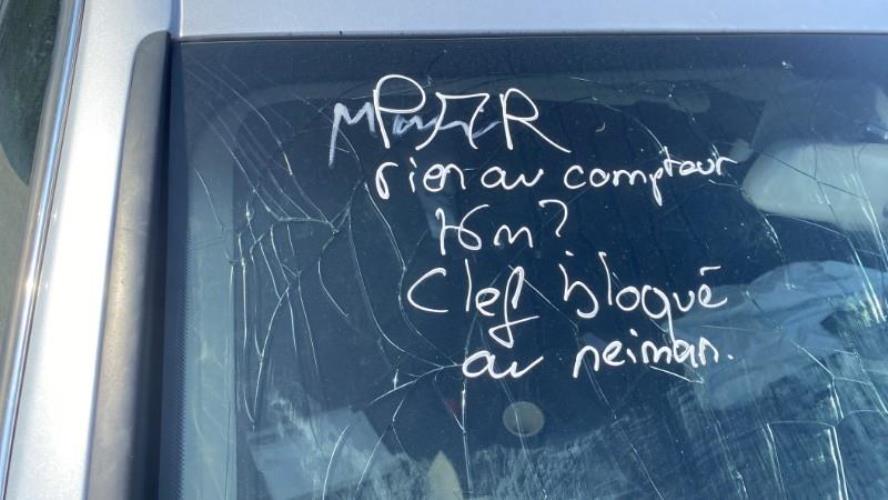 rien au compteur
Km?
Clef bloqué
au neiman.